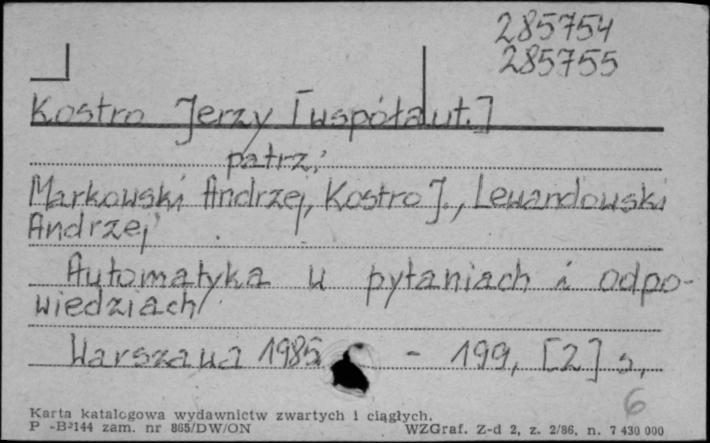 285754
285755
Kostro Jerzy [współaut.]
patrz:
Markowski Andrzej, Kostro J., Lewandowski
Andrzej
Automatyka w pytaniach i odpo-
wiedziach
Warszawa 1985 - 199, [2] s.
6
Karta katalogowa wydawnictw zwartych i ciągłych.
P -B-144 zam. nr 865/DW/ON WZGraf. Z-d 2, z. 2/86, n. 7 430 000